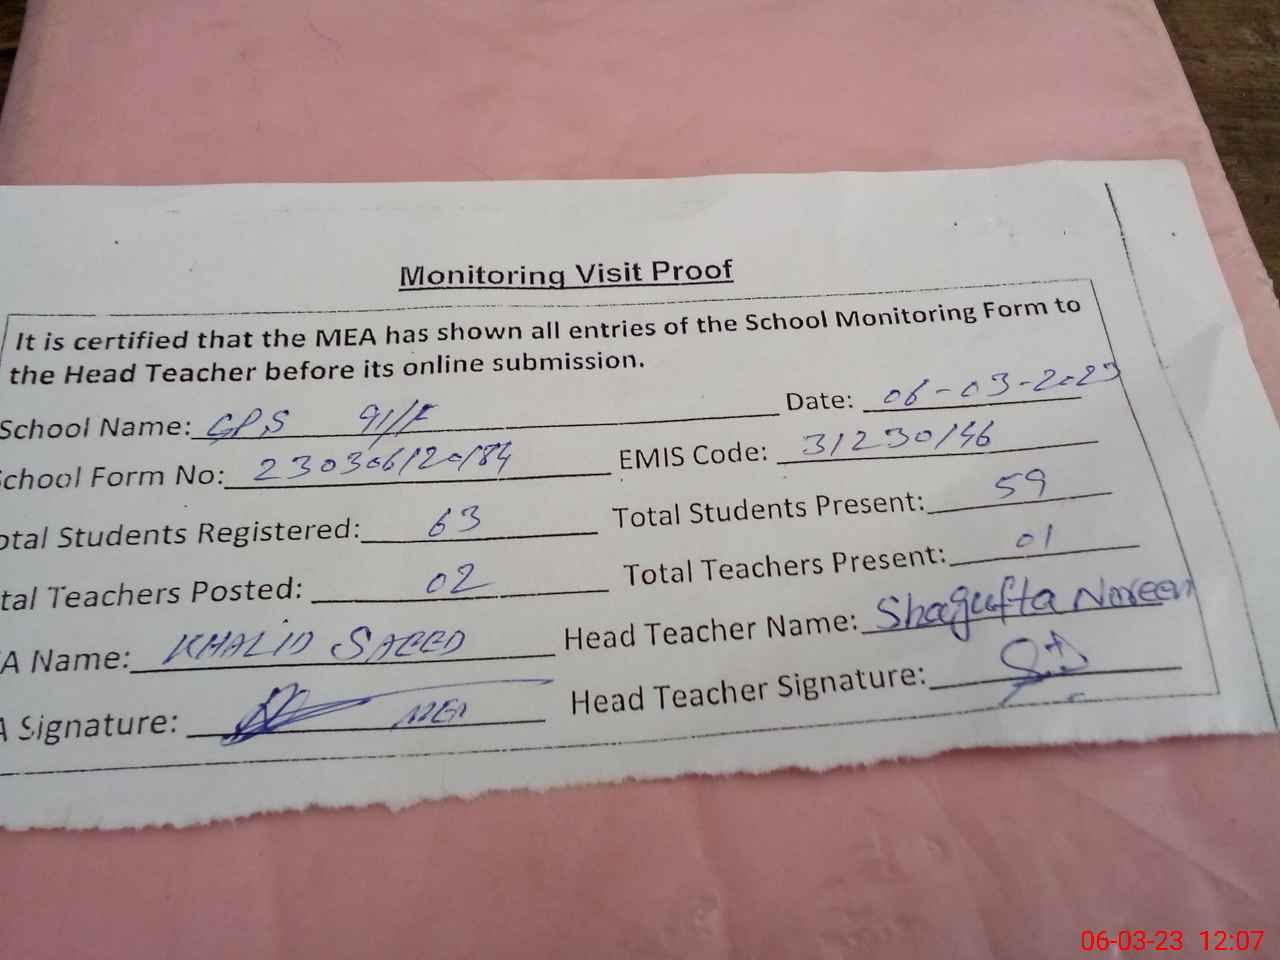 Monitoring Visit Proof
It is certified that the MEA has shown all entries of the School Monitoring Form to
the Head Teacher before its online submission.
School Name: GPS 91/F Date: 06-03-2023
chool Form No: 230306120184 EMIS Code: 31230146
otal Students Registered: 63 Total Students Present: 59
tal Teachers Posted: 02 Total Teachers Present: 01
A Name: KHALID SAEED Head Teacher Name: Shagufta Noreen
A Signature: MEA Head Teacher Signature:
06-03-23 12:07